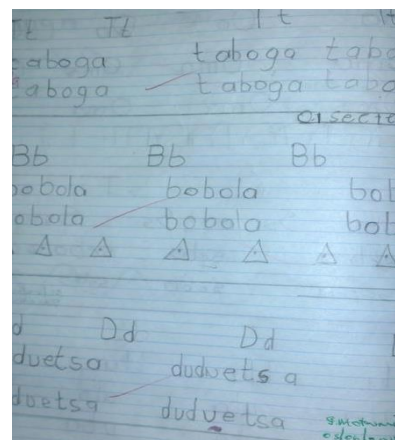 Tt Tt Tt
taboga taboga tabo
taboga taboga tabo
Bb Bb Bb
bobola bobola bob
obola bobola bob
d Dd Dd
duetsa duduetsa
duetsa duduetsa